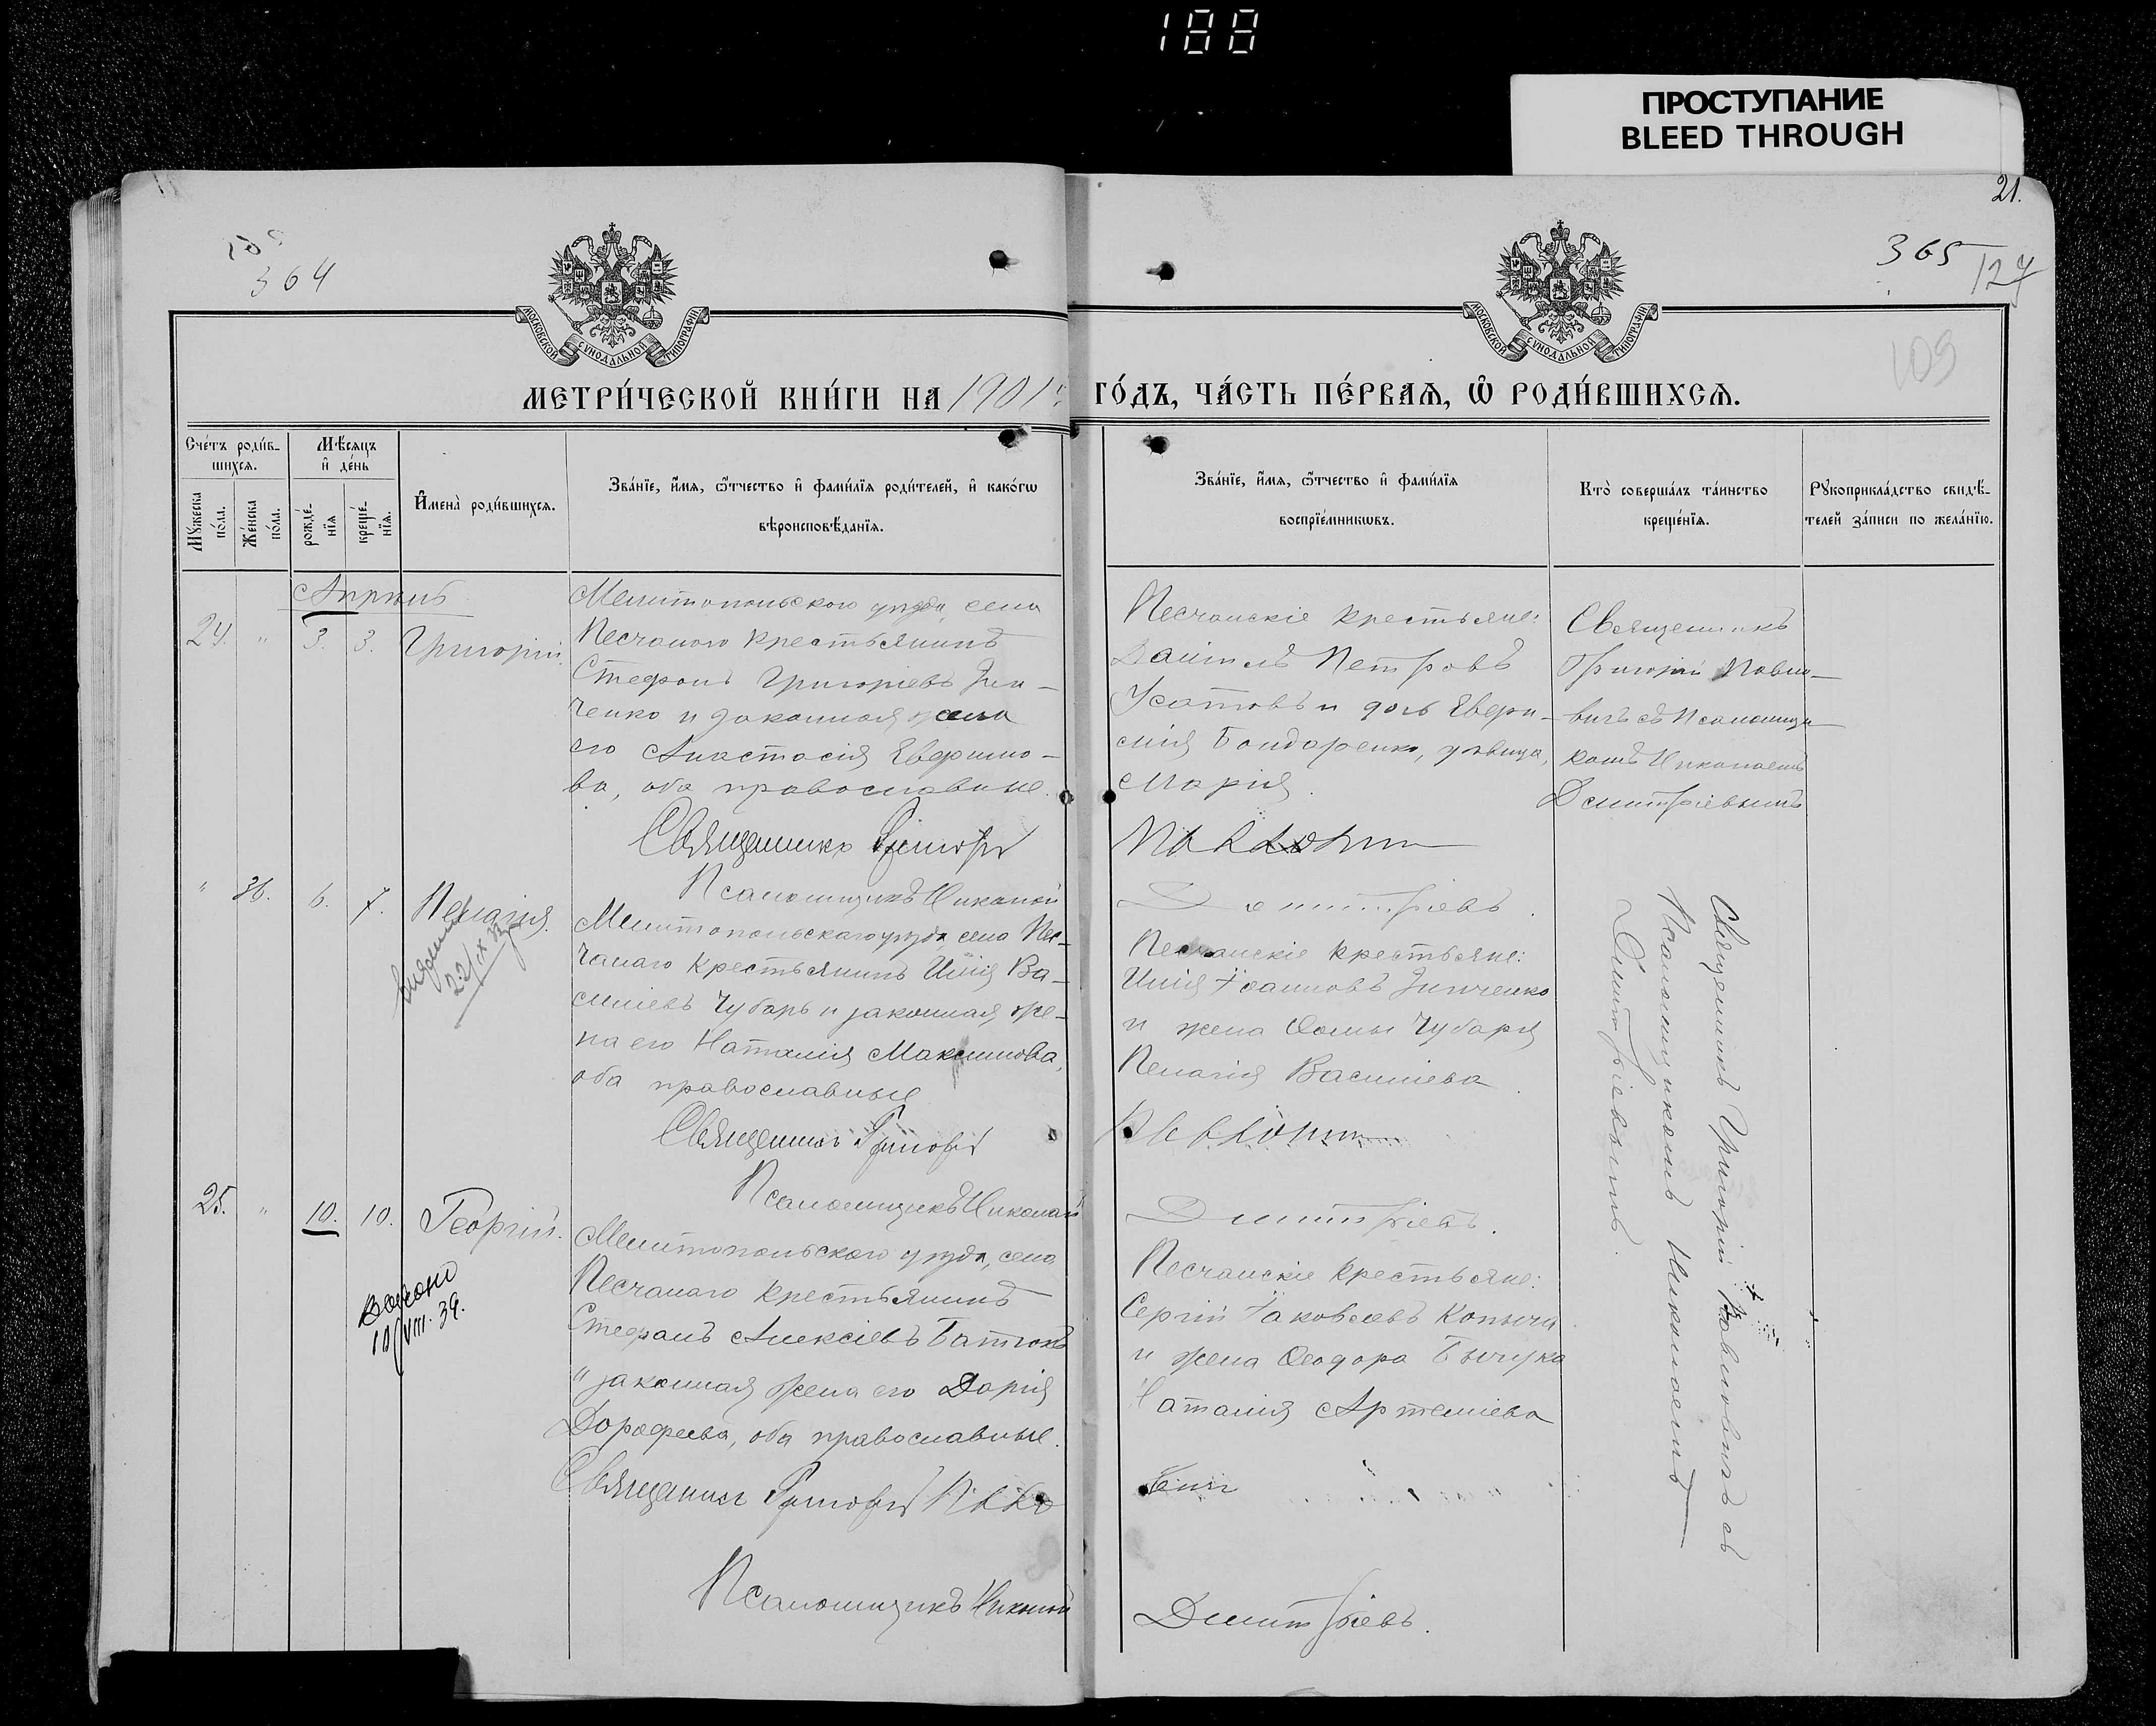 188
ПРОСТУПАНИЕ
BLEED THROUGH
21.
364
365
127
109
МОСКОВСКОЙ СУНОДАЛЬНОЙ ТИПОГРАФІИ
МОСКОВСКОЙ СУНОДАЛЬНОЙ ТИПОГРАФІИ
МЕТРИ́ЧЕСКОЙ КНИ́ГИ НА 1901 г.
ГО́ДЪ, ЧА́СТЬ ПЕ́РВАѦ, Ѡ҆ РОДИ́ВШИХСѦ.
Сче́тъ роди́в-
шихсѧ.
Мꙋ́жеска по́ла.
Же́нска по́ла.
Мѣ́сѧцъ и҆ де́нь
рожде́-
нїѧ
креще́-
нїѧ.
И҆мена̀ роди́вшихсѧ.
Зва́нїе, и҆́мѧ, ѻ҆́тчество и҆ фами́лїѧ роди́телей, и҆ како́гѡ
вѣроисповѣ́данїѧ.
Зва́нїе, и҆́мѧ, ѻ҆́тчество и҆ фами́лїѧ
воспрїе́мникѡвъ.
Кто̀ соверша́лъ та́инство
креще́нїѧ.
Рꙋкоприкла́дство свидѣ́-
телей за́писи по жела́нїю.
Апрѣль
24. " 3. 3. Григорій.
Мелитопольского уѣзда, села
Песчаного крестьянинъ
Стефанъ Григоріевъ Зин-
ченко и законная жена
его Анастасія Евфимо-
ва, оба православные.
Священникъ Григорій
Псаломщикъ Николай
Песчанскіе крестьяне:
Даніилъ Петровъ
Усатовъ и дочь Евфи-
мія Бондаренко, дѣвица,
Марія.
Павловичъ
Дмитріевъ.
Священникъ
Григорій Павло-
вичъ съ Псаломщи-
комъ Николаемъ
Дмитріевымъ
" 36. 6. 7. Пелагія.
видано
22/IX
Мелитопольскаго уѣзда, села Пес-
чанаго крестьянинъ Илія Ва-
силіевъ Чубарь и законная же-
на его Наталія Максимова,
оба православные
Священникъ Григорій
Псаломщикъ Николай
Песчанскіе крестьяне:
Илія Іоанновъ Зинченко
и жена Ѳомы Чубаря
Пелагія Василіева.
Дмитріевъ.
Священникъ Григорій Павловичъ съ
Псаломщикомъ Николаемъ
Дмитріевымъ.
25. " 10. 10. Георгій.
10/VIII. 39.
Мелитопольскаго уѣзда, села
Песчанаго крестьянинъ
Стефанъ Алексіевъ Батюкъ
и законная жена его Дарія
Дорофеева, оба православные.
Священникъ Григорій Павло
Псаломщикъ Николай
Песчанскіе крестьяне:
Сергій Іаковлевъ Копыча
и жена Ѳеодора Бычука
Наталія Артеміева
вичъ
Дмитріевъ.